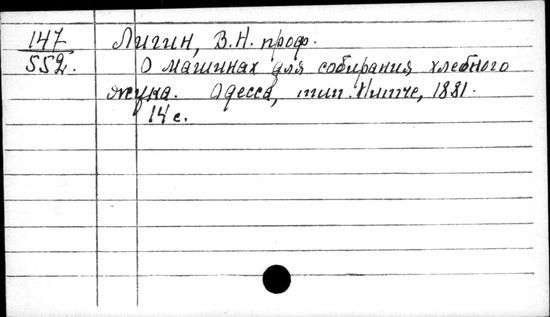 147 Лигин, В.Н. проф.
552. О машинах для собирания хлебного
жука. Одесса, тип. Нитче, 1881.
14 с.